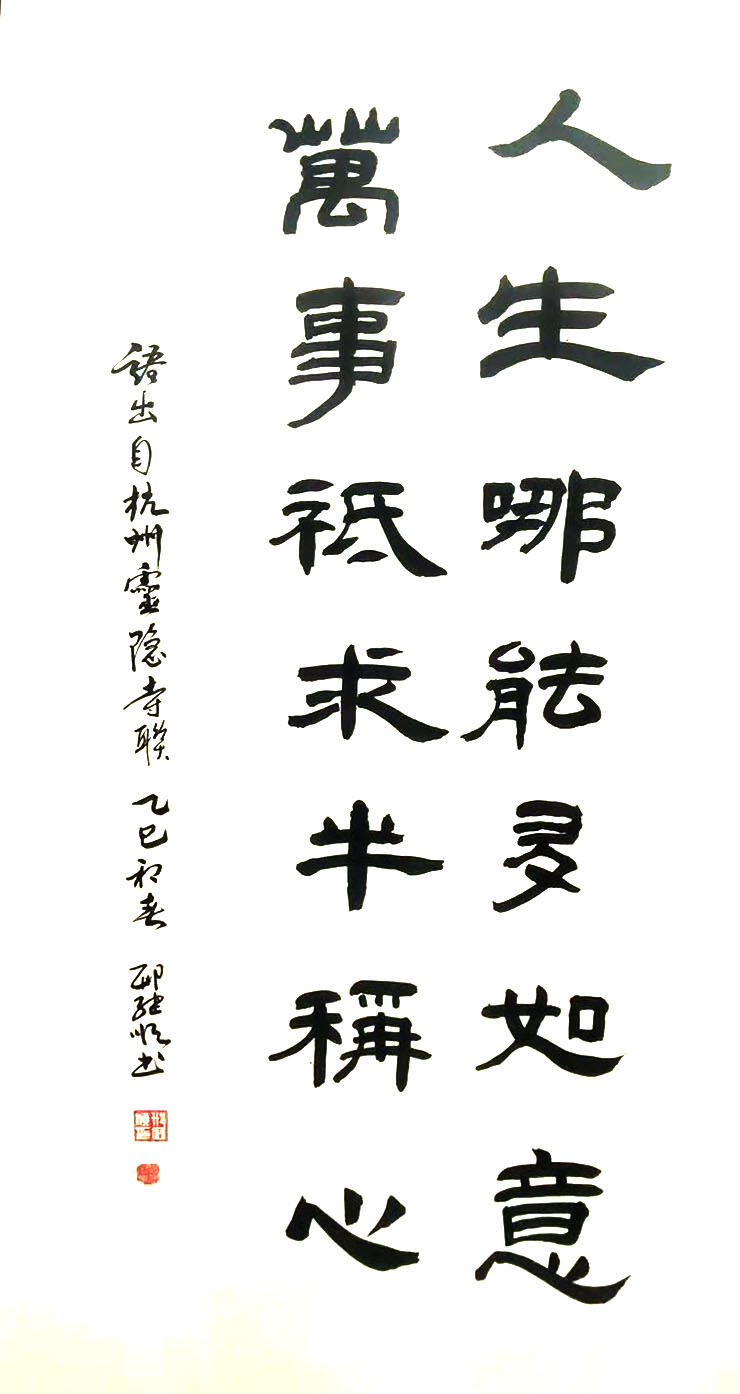 人生哪能多如意
萬事祇求半稱心
語出自杭州靈隐寺聯 乙巳初春 邢继順书